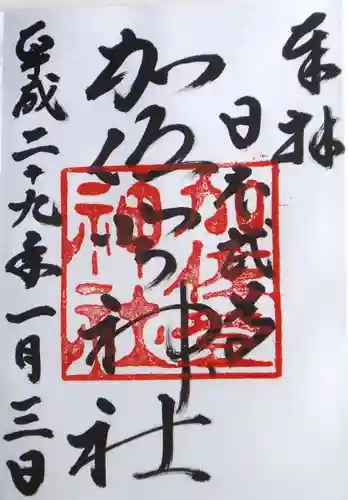 奉拝
日本武尊
加佐登神社
平成二十九年一月三日
加佐登
神社